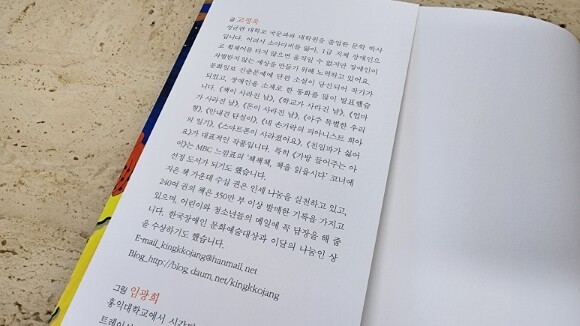 글 고정욱
성균관 대학교 국문과와 대학원을 졸업한 문학 박사
입니다. 어려서 소아마비를 앓아, 1급 지체 장애인으
로 휠체어를 타지 않으면 움직일 수 없지만 장애인이
차별받지 않는 세상을 만들기 위해 노력하고 있어요.
문화일보 신춘문예에 단편 소설이 당선되어 작가가
되었고, 장애인을 소재로 한 동화를 많이 발표했습
니다. 《책이 사라진 날》, 《학교가 사라진 날》, 《엄마
가 사라진 날》, 《돈이 사라진 날》, 《아주 특별한 우리
형》, 《안내견 탄실이》, 《네 손가락의 피아니스트 희아
의 일기》, 《스마트폰이 사라졌어요》, 《친일파가 싫어
요》가 대표적인 작품입니다. 특히 《가방 들어주는 아
이》는 MBC 느낌표의 '책책책, 책을 읽읍시다' 코너에
선정 도서가 되기도 했습니다.
지은 책 가운데 수십 권은 인세 나눔을 실천하고 있고,
240여 권의 책은 350만 부 이상 발매한 기록을 가지고
있으며, 어린이와 청소년들의 메일에 꼭 답장을 해 줍
니다. 한국장애인 문화예술대상과 이달의 나눔인 상
을 수상하기도 했습니다.
E-mail_kingkkojang@hanmail.net
Blog_http://blog.daum.net/kingkkojang
그림 임광희
홍익대학교에서 시각디